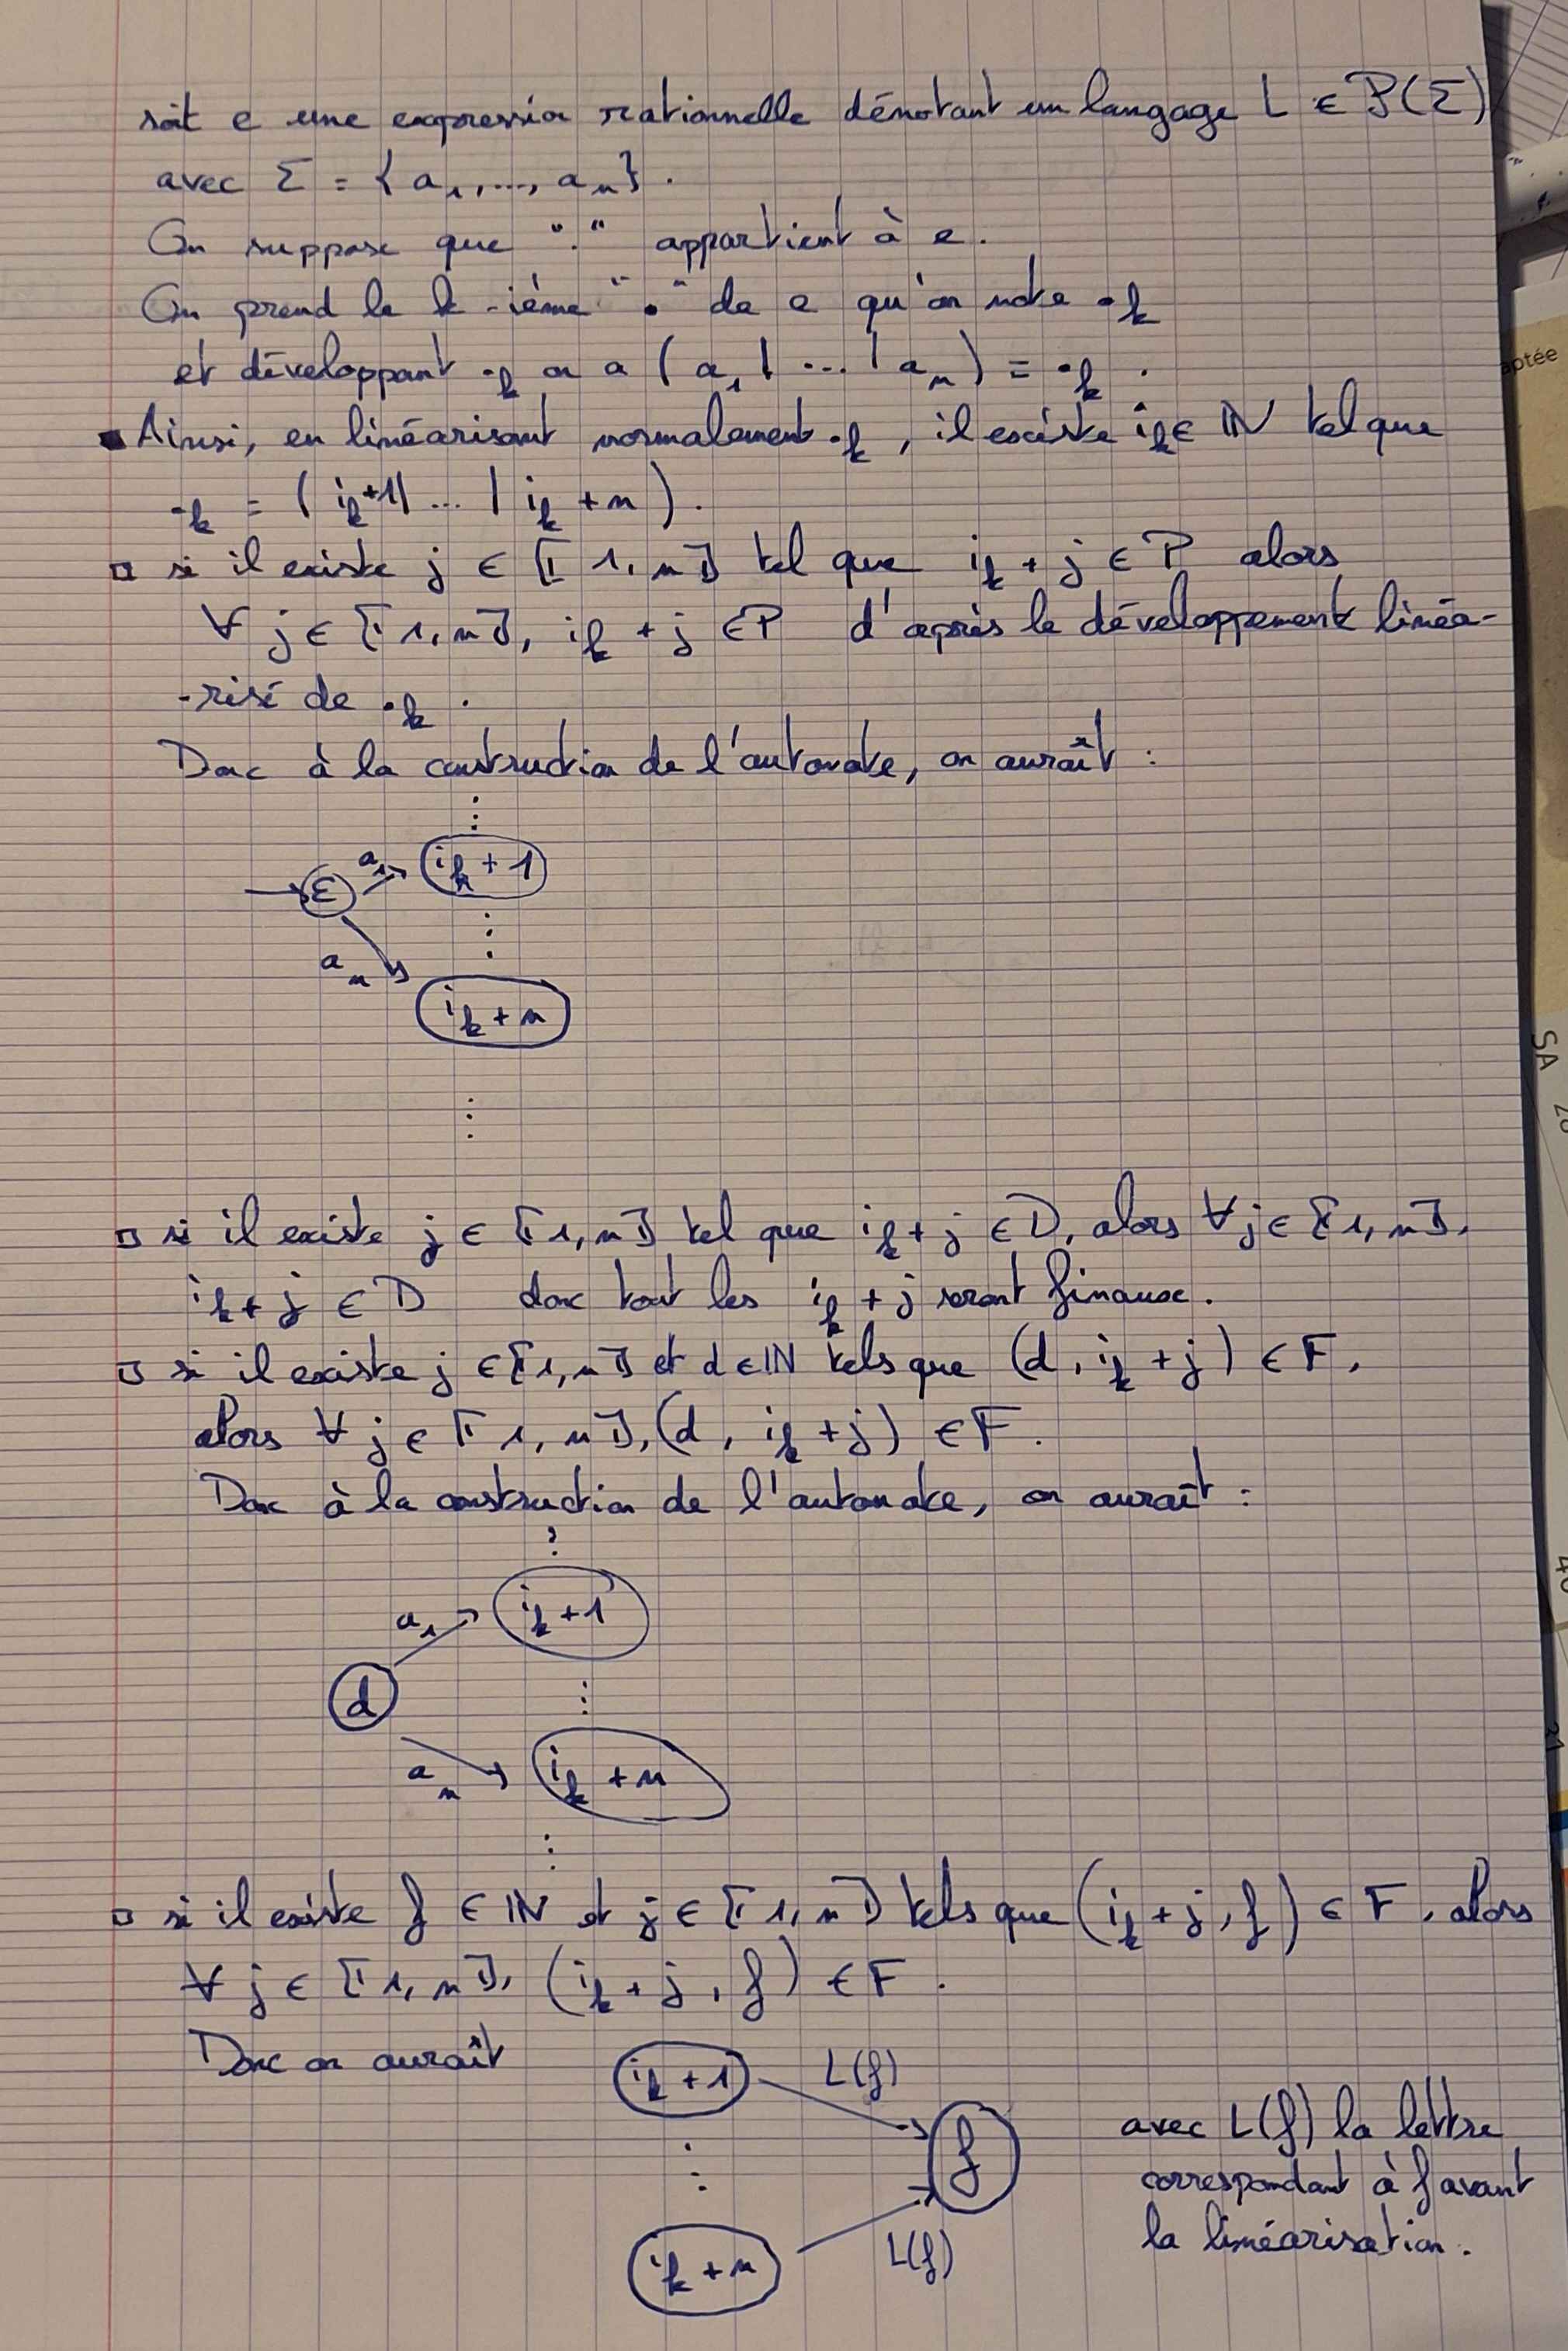 soit e une expression rationnelle dénotant un langage L ∈ P(Σ)
avec Σ = {a₁,..., aₙ}.
On suppose que "." appartient à e.
On prend le k-ième "." de e qu'on note •ₖ
et développant •ₖ on a (a₁|...|aₙ) = •ₖ.
▪ Ainsi, en linéarisant normalement •ₖ, il existe iₖ ∈ ℕ tel que
•ₖ = (iₖ+1|...|iₖ+n).
▫ si il existe j ∈ ⟦1,n⟧ tel que iₖ+j ∈ P alors
∀ j ∈ ⟦1,n⟧, iₖ+j ∈ P d'après le développement linéa-
-risé de •ₖ.
Donc à la construction de l'automate, on aurait :
⋮
ε a₁ iₖ+1
⋮
aₙ
iₖ+n
⋮
▫ si il existe j ∈ ⟦1,n⟧ tel que iₖ+j ∈ D, alors ∀ j ∈ ⟦1,n⟧,
iₖ+j ∈ D donc tout les iₖ+j seront finaux.
▫ si il existe j ∈ ⟦1,n⟧ et d ∈ ℕ tels que (d, iₖ+j) ∈ F,
alors ∀ j ∈ ⟦1,n⟧, (d, iₖ+j) ∈ F.
Donc à la construction de l'automate, on aurait :
⋮
a₁ iₖ+1
d ⋮
aₙ iₖ+n
⋮
▫ si il existe f ∈ ℕ et j ∈ ⟦1,n⟧ tels que (iₖ+j, f) ∈ F, alors
∀ j ∈ ⟦1,n⟧, (iₖ+j, f) ∈ F.
Donc on aurait iₖ+1 L(f)
f avec L(f) la lettre
⋮ correspondant à f avant
iₖ+n L(f) la linéarisation.
aptée
SA
40